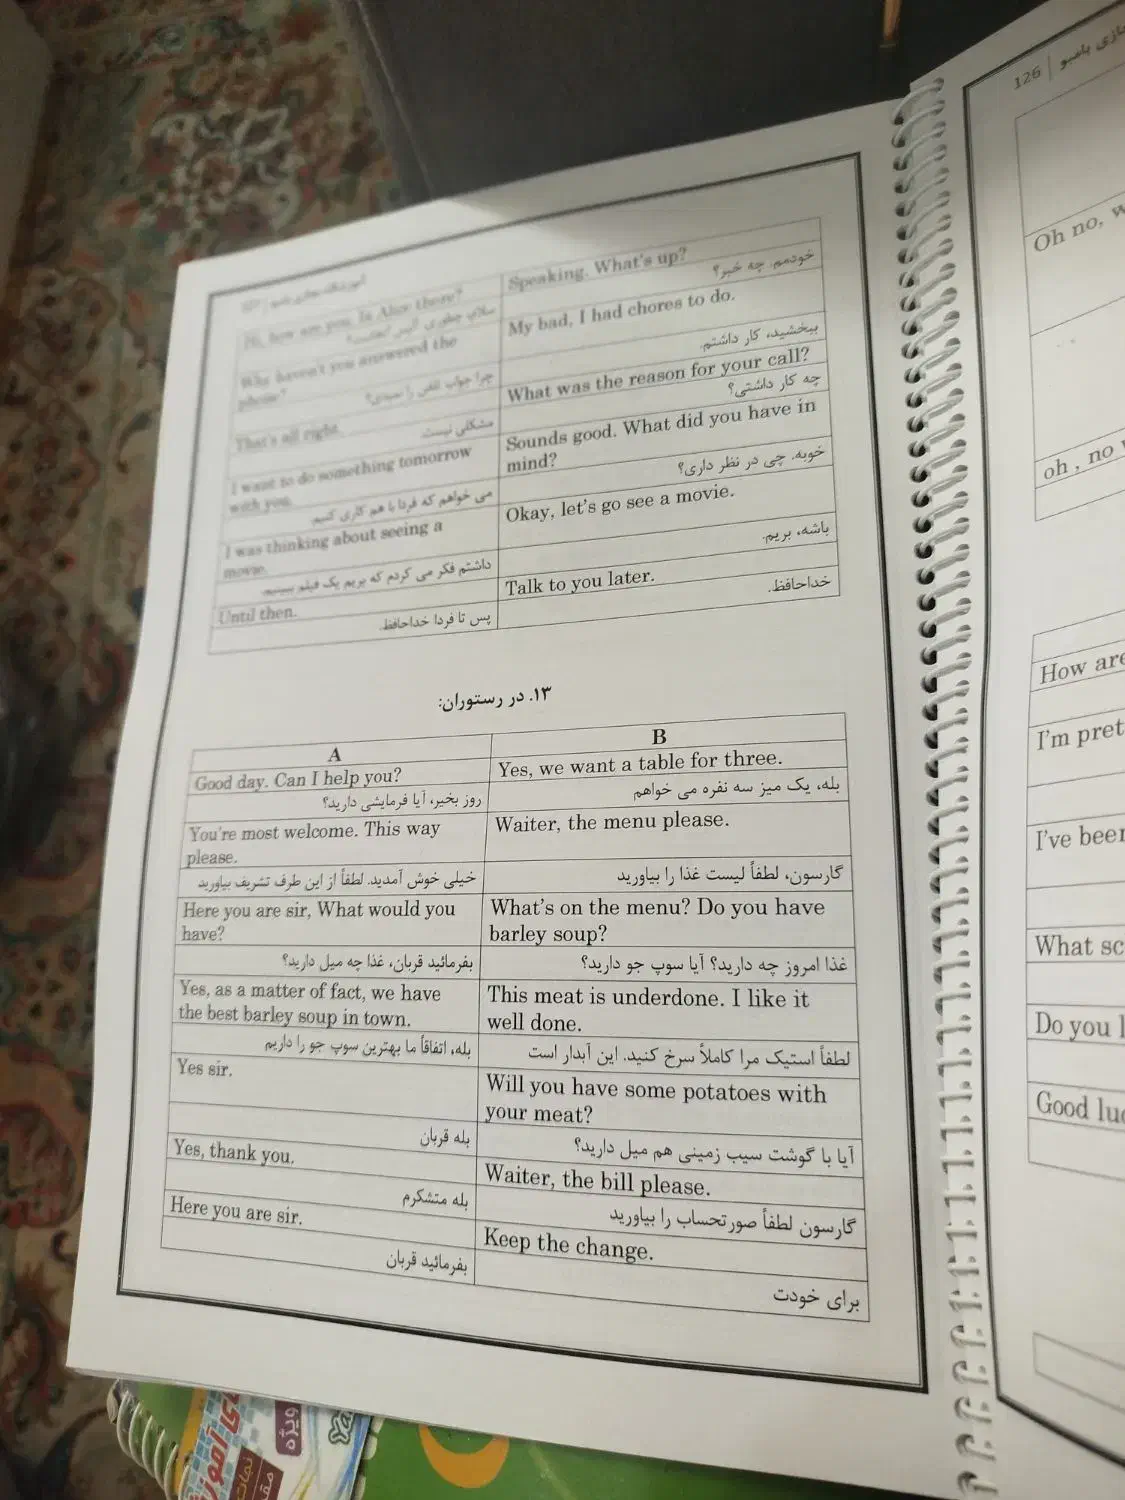 آموزشگاه مجازی بامبو | 127
Hi, how are you. Is Alice there?
Speaking. What's up?
سلام، چطوری آلیس اونجاست؟
خودمم. چه خبر؟
Why haven't you answered the
phone?
My bad, I had chores to do.
چرا جواب تلفن را نمیدی؟
ببخشید، کار داشتم.
That's all right.
What was the reason for your call?
مشکلی نیست.
چه کار داشتی؟
I want to do something tomorrow
with you.
Sounds good. What did you have in
mind?
می خواهم که فردا با هم کاری کنیم.
خوبه. چی در نظر داری؟
I was thinking about seeing a
movie.
Okay, let's go see a movie.
داشتم فکر می کردم که بریم یک فیلم ببینیم.
باشه، بریم.
Until then.
Talk to you later.
پس تا فردا خداحافظ.
خداحافظ.
۱۳. در رستوران:
A
B
Good day. Can I help you?
Yes, we want a table for three.
روز بخیر، آیا فرمایشی دارید؟
بله، یک میز سه نفره می خواهم
You're most welcome. This way
please.
Waiter, the menu please.
خیلی خوش آمدید. لطفاً از این طرف تشریف بیاورید
گارسون، لطفاً لیست غذا را بیاورید
Here you are sir, What would you
have?
What's on the menu? Do you have
barley soup?
بفرمائید قربان، غذا چه میل دارید؟
غذا امروز چه دارید؟ آیا سوپ جو دارید؟
Yes, as a matter of fact, we have
the best barley soup in town.
This meat is underdone. I like it
well done.
بله، اتفاقاً ما بهترین سوپ جو را داریم
لطفاً استیک مرا کاملاً سرخ کنید. این آبدار است
Yes sir.
Will you have some potatoes with
your meat?
بله قربان
آیا با گوشت سیب زمینی هم میل دارید؟
Yes, thank you.
Waiter, the bill please.
بله متشکرم
گارسون لطفاً صورتحساب را بیاورید
Here you are sir.
Keep the change.
بفرمائید قربان
برای خودت
126 | بامبو
Oh no,
oh , no
How are
I'm pret
I've been
What sc
Do you
Good luc
ویژه